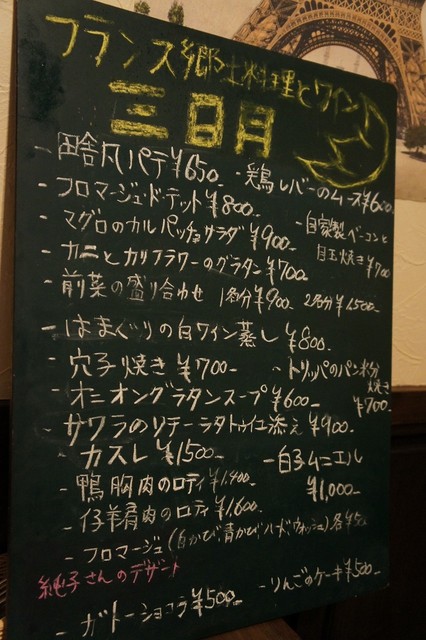 フランス郷土料理とワイン
三日月
- 田舎風パテ ¥650-
- 鶏レバーのムース ¥600-
- フロマージュ・ド・テット ¥800-
- マグロのカルパッチョサラダ ¥900-
- 自家製ベーコンと
目玉焼き ¥700
- カニとカリフラワーのグラタン ¥700-
- 前菜の盛り合わせ 1名分 ¥900 2名分 ¥1,500-
- はまぐりの白ワイン蒸し ¥800-
- 穴子焼き ¥700-
- トリッパのパン粉
焼き
¥700-
- オニオングラタンスープ ¥600-
- サワラのソテーラタトゥイユ添え ¥900-
- カスレ ¥1500-
- 白子ムニエル
¥1,000-
- 鴨胸肉のロティ ¥1,400-
- 仔羊肩肉のロティ ¥1,600-
- フロマージュ(白かび・青かび・ハード・ウォッシュ)各
純子さんのデザート
- ガトーショコラ ¥500-
- りんごのケーキ ¥500-